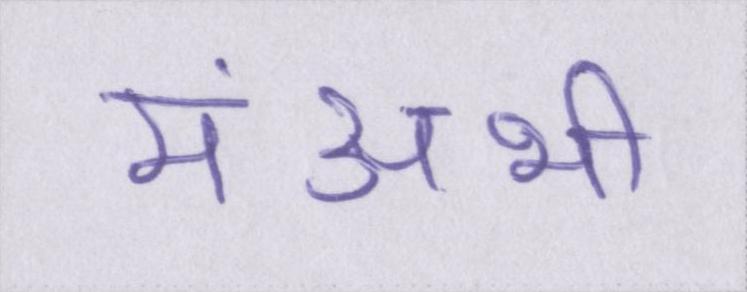 मंअभी